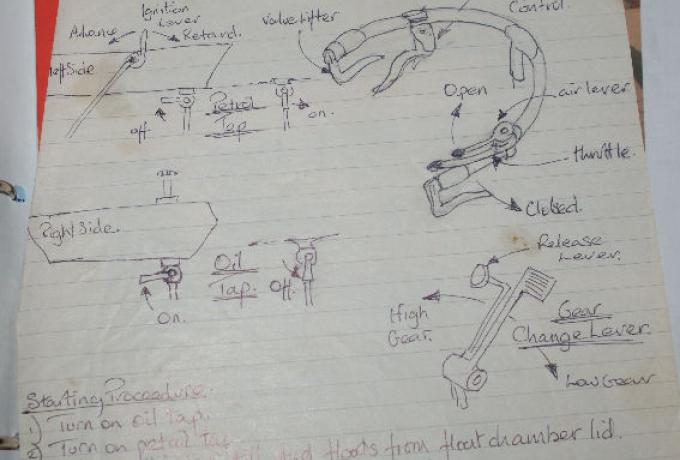 Ignition
Lever
Advance
Retard.
Valve lifter
Control.
Left Side
off.
Petrol
Tap
on.
Open
air lever
throttle.
Closed.
Right Side.
On.
Oil
Tap.
Off.
Release
Lever.
High
Gear.
Gear
Change Lever.
Low Gear
Starting Proceedure.
1) Turn on oil tap.
2) Turn on petrol tap
floats from float chamber lid.